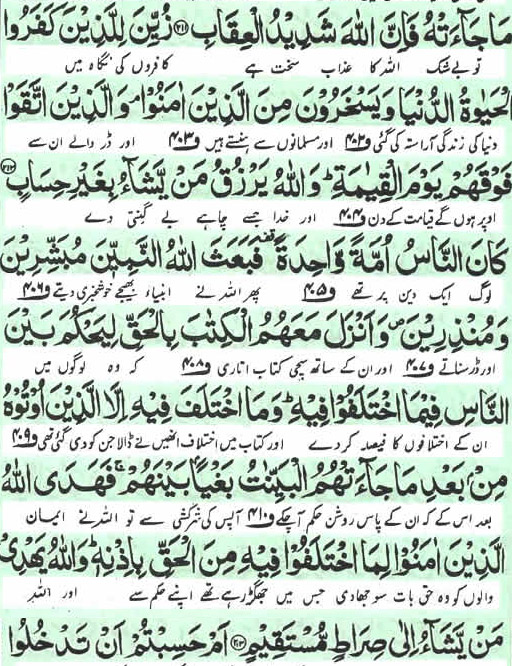 مَا جَآءَتْهُ فَاِنَّ اللّٰهَ شَدِيْدُ الْعِقَابِ ﴿۲۱۱﴾ زُيِّنَ لِلَّذِيْنَ كَفَرُوا
تو بے شک اللہ کا عذاب سخت ہے کافروں کی نگاہ میں
الْحَيٰوةُ الدُّنْيَا وَيَسْخَرُوْنَ مِنَ الَّذِيْنَ اٰمَنُوْا ۘ وَالَّذِيْنَ اتَّقَوْا
دنیا کی زندگی آراستہ کی گئی و۴۰۲ اور مسلمانوں سے ہنستے ہیں و۴۰۳ اور ڈر والے ان سے
فَوْقَهُمْ يَوْمَ الْقِيٰمَةِ ؕ وَاللّٰهُ يَرْزُقُ مَنْ يَّشَآءُ بِغَيْرِ حِسَابٍ ﴿۲۱۲﴾
اوپر ہوں گے قیامت کے دن و۴۰۴ اور خدا جسے چاہے بے گنتی دے
كَانَ النَّاسُ اُمَّةً وَّاحِدَةً ۟ فَبَعَثَ اللّٰهُ النَّبِيّٖنَ مُبَشِّرِيْنَ
لوگ ایک دین پر تھے و۴۰۵ پھر اللہ نے انبیاء بھیجے خوشخبری دیتے و۴۰۶
وَمُنْذِرِيْنَ ۪ وَاَنْزَلَ مَعَهُمُ الْكِتٰبَ بِالْحَقِّ لِيَحْكُمَ بَيْنَ
اور ڈر سناتے و۴۰۷ اور ان کے ساتھ سچی کتاب اتاری و۴۰۸ کہ وہ لوگوں میں
النَّاسِ فِيْمَا اخْتَلَفُوْا فِيْهِ ؕ وَمَا اخْتَلَفَ فِيْهِ اِلَّا الَّذِيْنَ اُوْتُوْهُ
ان کے اختلافوں کا فیصلہ کر دے اور کتاب میں اختلاف انھیں نے ڈالا جن کو دی گئی تھی و۴۰۹
مِنْۢ بَعْدِ مَا جَآءَتْهُمُ الْبَيِّنٰتُ بَغْيًۢا بَيْنَهُمْ ۚ فَهَدَى اللّٰهُ
بعد اس کے کہ ان کے پاس روشن حکم آ چکے و۴۱۰ آپس کی سرکشی سے تو اللہ نے ایمان
الَّذِيْنَ اٰمَنُوْا لِمَا اخْتَلَفُوْا فِيْهِ مِنَ الْحَقِّ بِاِذْنِهٖ ؕ وَاللّٰهُ يَهْدِيْ
والوں کو وہ حق بات سوجھا دی جس میں جھگڑ رہے تھے اپنے حکم سے اور اللہ
مَنْ يَّشَآءُ اِلٰى صِرَاطٍ مُّسْتَقِيْمٍ ﴿۲۱۳﴾ اَمْ حَسِبْتُمْ اَنْ تَدْخُلُوا